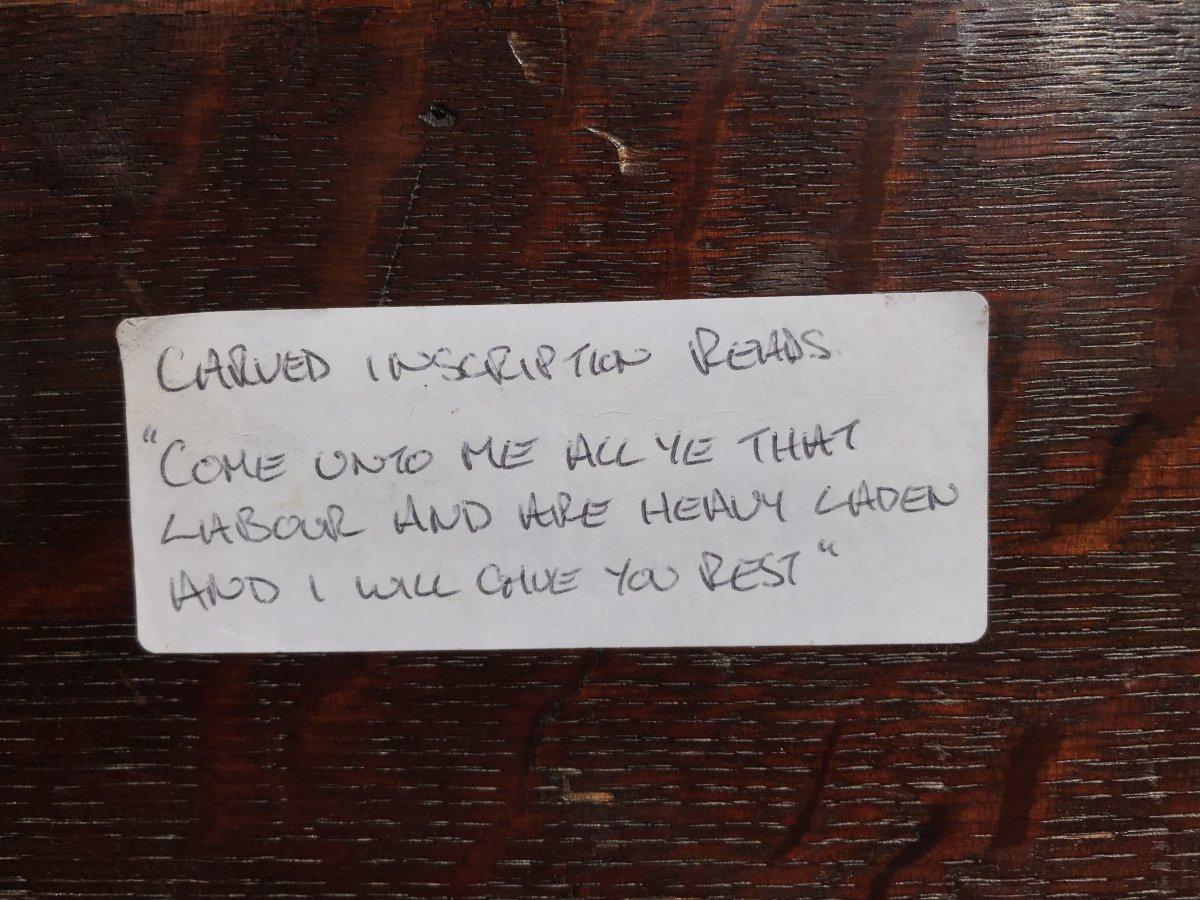 CARVED INSCRIPTION READS
"COME UNTO ME ALL YE THAT
LABOUR AND ARE HEAVY LADEN
AND I WILL GIVE YOU REST"